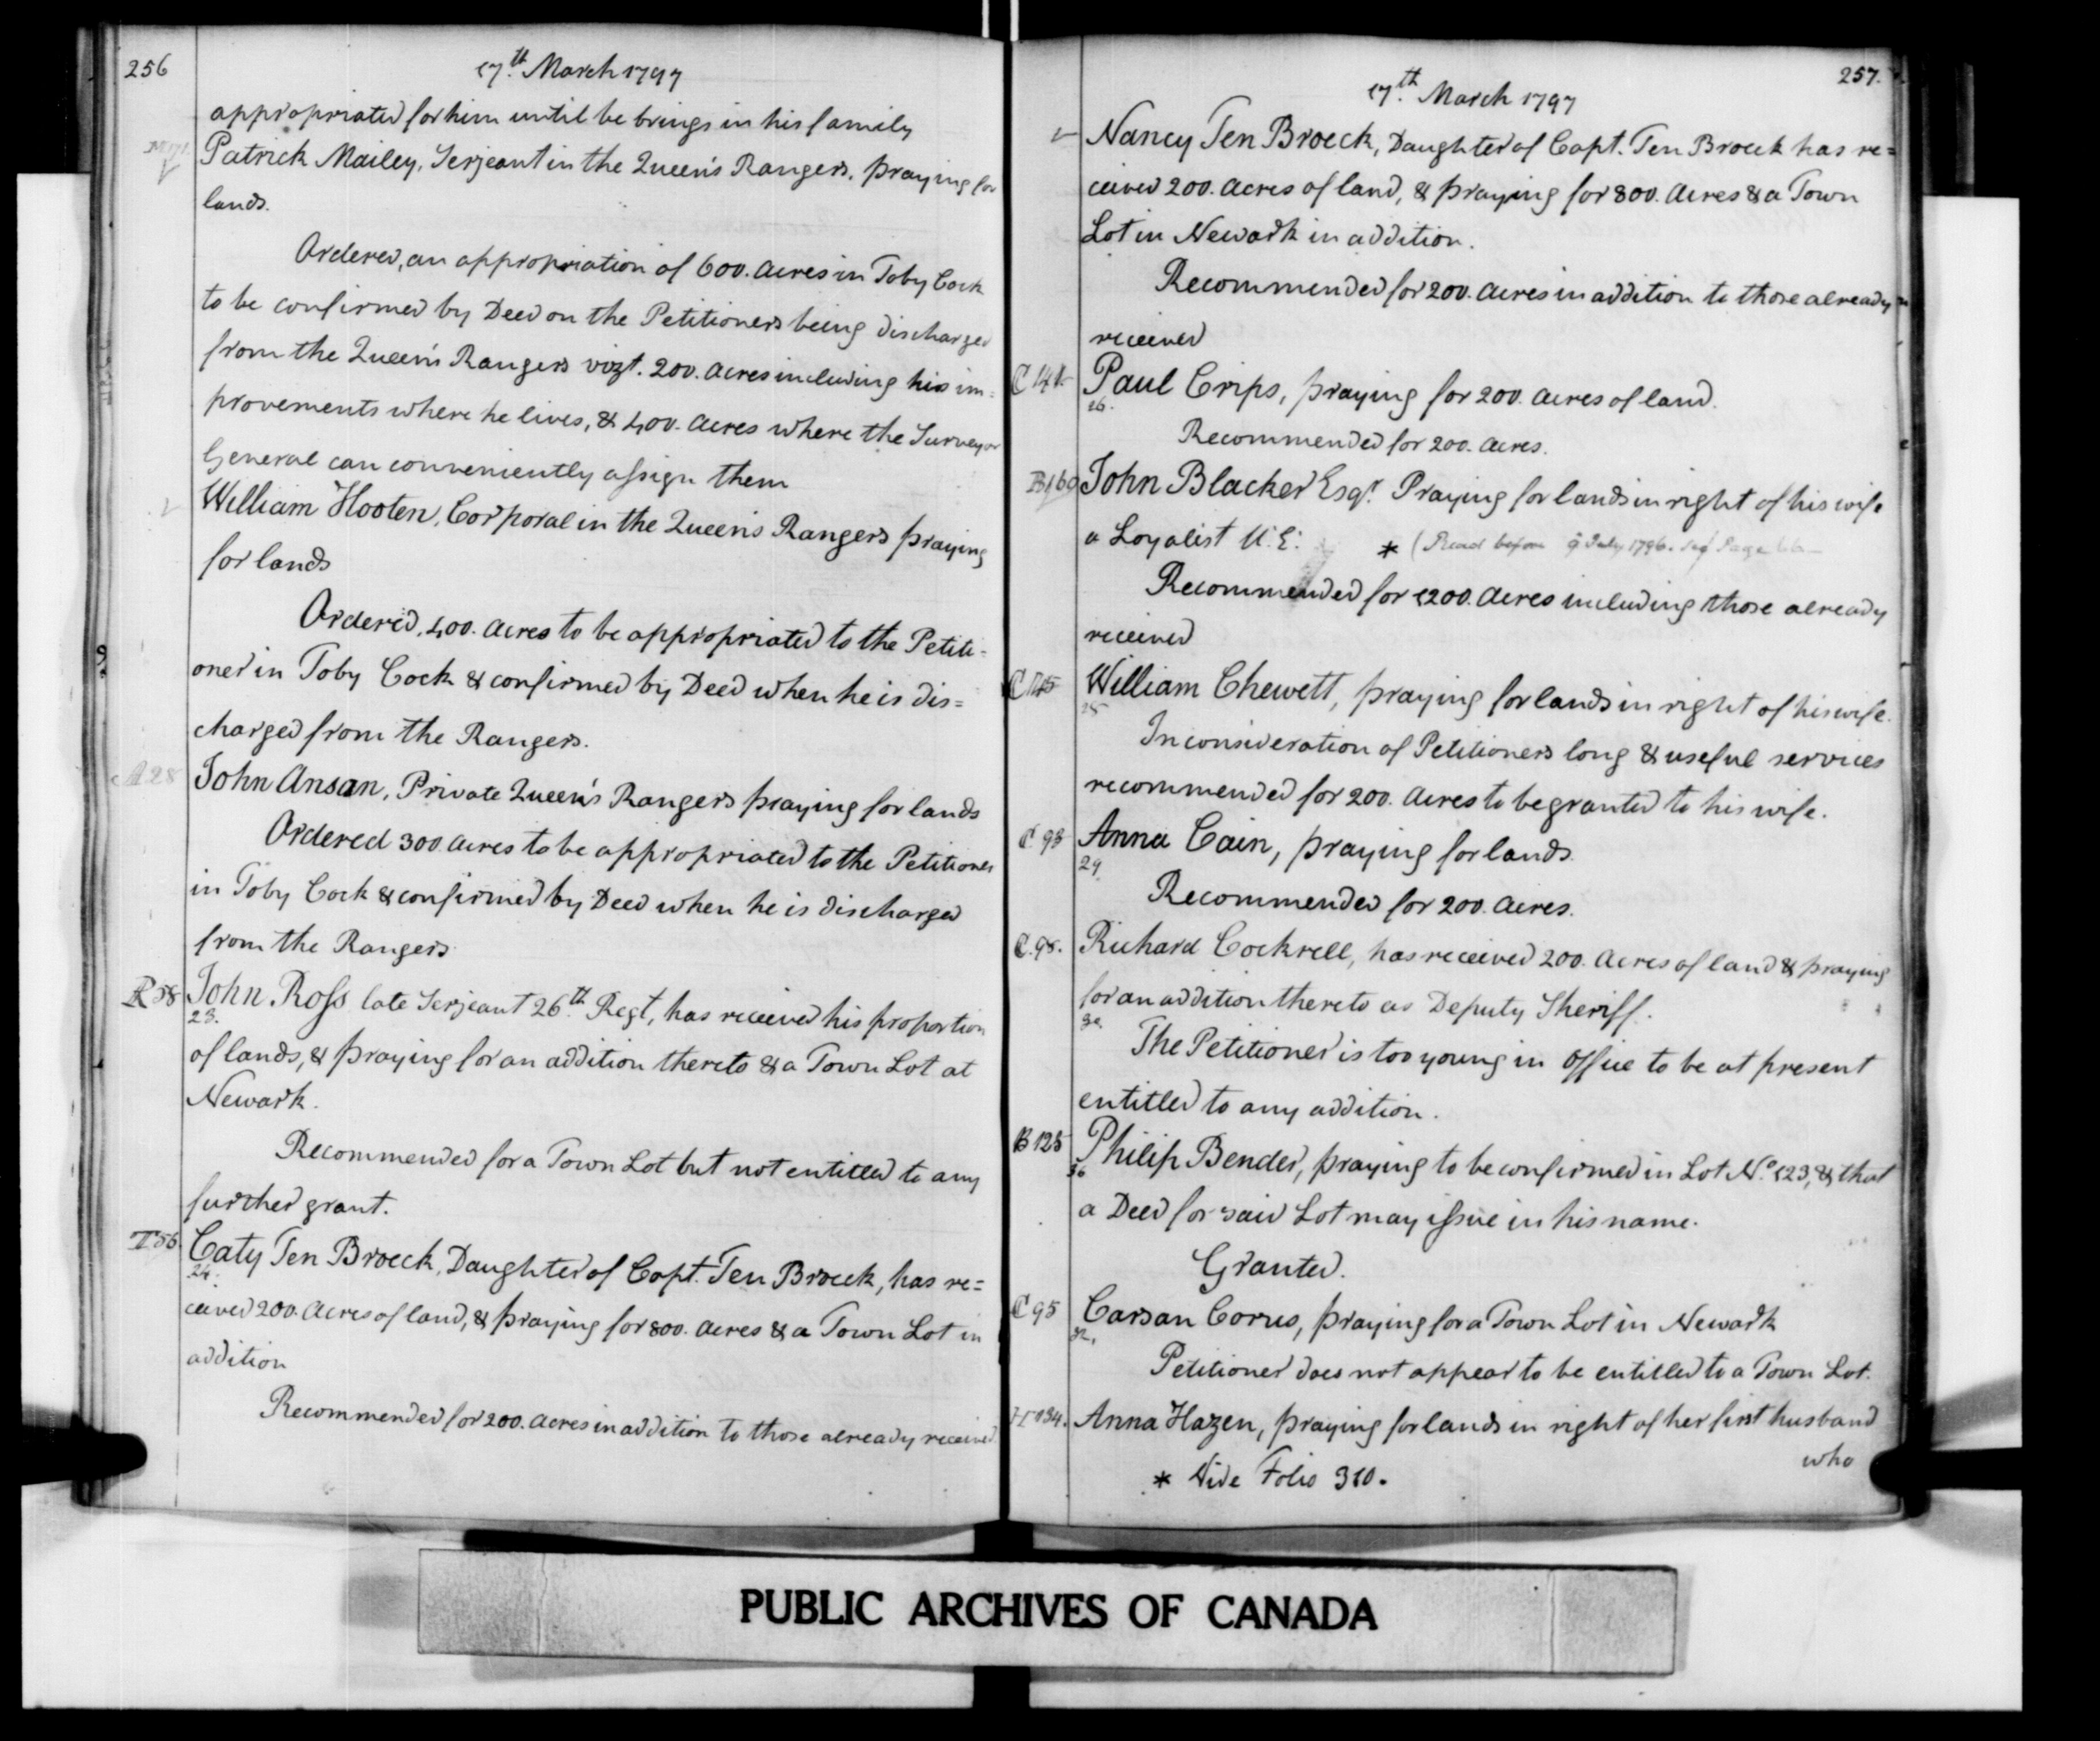 256
17th March 1797
appropriated for him until he brings in his family
Patrick Mailey, Serjeant in the Queen's Rangers, praying for
lands.
Ordered, an appropriation of 600. Acres in Toby Cock
to be confirmed by Deed on the Petitioners being discharged
from the Queen's Rangers vizt. 200. Acres including his im=
provements where he lives, & 400. Acres where the Surveyor
General can conveniently assign them
William Hooten, Corporal in the Queen's Rangers praying
for lands
Ordered, 400. Acres to be appropriated to the Petiti=
oner in Toby Cock & confirmed by Deed when he is dis=
charged from the Rangers.
A 28
John Ansan, Private Queen's Rangers praying for lands
Ordered 300. Acres to be appropriated to the Petitioner
in Toby Cock & confirmed by Deed when he is discharged
from the Rangers
R 58
John Ross late Serjeant 26th Regt, has received his proportion
23.
of lands, & praying for an addition thereto & a Town Lot at
Newark.
Recommended for a Town Lot but not entitled to any
further grant.
T 56
Caty Ten Broeck, Daughter of Capt. Ten Broeck, has re=
24.
ceived 200. Acres of land, & praying for 800. Acres & a Town Lot in
addition
Recommended for 200. Acres in addition to those already received
257.
17th March 1797
Nancy Ten Broeck, Daughter of Capt. Ten Broeck has re=
ceived 200. Acres of land, & praying for 800. Acres & a Town
Lot in Newark in addition.
Recommended for 200. Acres in addition to those already
received
C 141
Paul Crips, praying for 200. Acres of land.
26.
Recommended for 200. Acres.
B 160
John Blacker Esqr. Praying for lands in right of his wife
a Loyalist U.E. * (Read before 9 July 1796. see Page 66
Recommended for 1200. Acres including those already
received
C 145
William Chewett, praying for lands in right of his wife.
28
In consideration of Petitioners long & useful services
recommended for 200. Acres to be granted to his wife.
C 93
Anna Cain, praying for lands.
29.
Recommended for 200. Acres.
C. 98.
Richard Cockrell, has received 200. Acres of land & praying
for an addition thereto as Deputy Sheriff.
30.
The Petitioner is too young in Office to be at present
entitled to any addition.
B 125
Philip Bender, praying to be confirmed in Lot No. 123, & that
36
a Deed for said Lot may issue in his name.
Granted.
C 95
Carsan Corus, praying for a Town Lot in Newark
32.
Petitioner does not appear to be entitled to a Town Lot.
H 34.
Anna Hazen, praying for lands in right of her first husband
who
* Vide Folio 310.
PUBLIC ARCHIVES OF CANADA